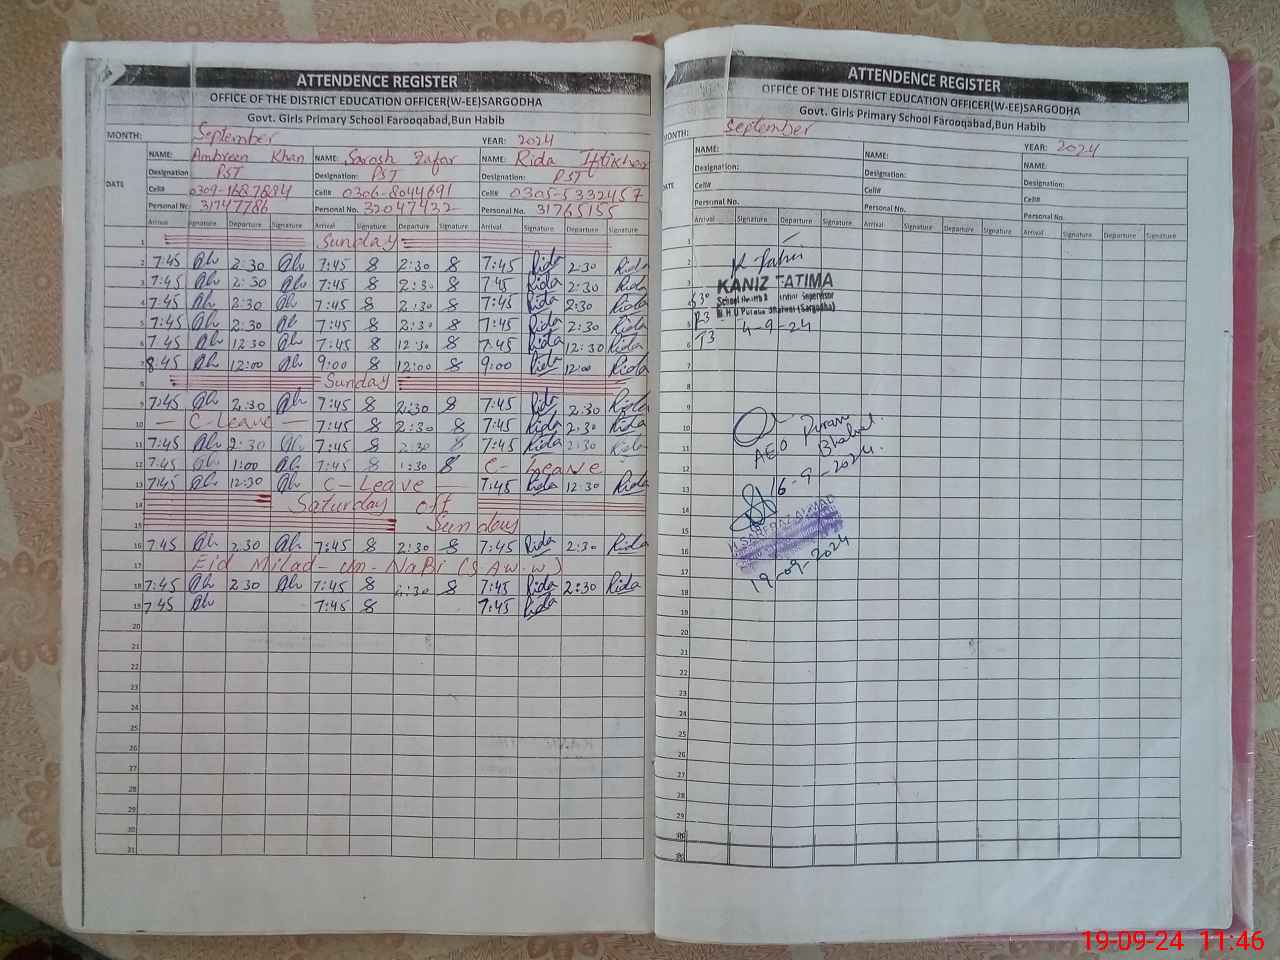 ATTENDENCE REGISTER
OFFICE OF THE DISTRICT EDUCATION OFFICER(W-EE)SARGODHA
Govt. Girls Primary School Farooqabad,Bun Habib
MONTH: September YEAR: 2024
NAME: Ambreen Khan NAME: Sarosh Zafar NAME: Rida Iftikhar
Designation: PST Designation: PST Designation: PST
DATE
Cell# Cell# 0306-8044691 Cell# 0305-5332457
Personal No. 31747786 Personal No. 32047432 Personal No. 31765155
Arrival Signature Departure Signature Arrival Signature Departure Signature Arrival Signature Departure Signature
1 Sunday
2 7:45 2:30 7:45 2:30 7:45 Rida 2:30 Rida
3 7:45 2:30 7:45 2:30 7:45 Rida 2:30 Rida
4 7:45 2:30 7:45 2:30 7:45 Rida 2:30 Rida
5 7:45 2:30 7:45 2:30 7:45 Rida 2:30 Rida
6 7:45 12:30 7:45 12:30 7:45 Rida 12:30 Rida
7 8:45 12:00 9:00 12:00 9:00 Rida 12:00 Rida
8 Sunday
9 7:45 2:30 7:45 2:30 7:45 Rida 2:30 Rida
10 — C-Leave — 7:45 2:30 7:45 Rida 2:30 Rida
11 7:45 2:30 7:45 2:30 7:45 Rida 2:30 Rida
12 7:45 1:00 7:45 1:30 C-Leave
13 7:45 12:30 C-Leave 7:45 Rida 12:30 Rida
14 Saturday off
15 Sunday
16 7:45 2:30 7:45 2:30 7:45 Rida 2:30 Rida
17 Eid Milad-un-Nabi (S.A.W.W)
18 7:45 2:30 7:45 2:30 7:45 Rida 2:30 Rida
19 7:45 7:45 7:45 Rida
20
21
22
23
24
25
26
27
28
29
30
31
ATTENDENCE REGISTER
OFFICE OF THE DISTRICT EDUCATION OFFICER(W-EE)SARGODHA
Govt. Girls Primary School Farooqabad,Bun Habib
MONTH: September YEAR: 2024
NAME: NAME: NAME:
Designation: Designation: Designation:
DATE
Cell# Cell# Cell#
Personal No. Personal No. Personal No.
Arrival Signature Departure Signature Arrival Signature Departure Signature Arrival Signature Departure Signature
1
2
3 KANIZ FATIMA
4
5 4-9-24
6 T3
7
8
9
10
11 AEO
12
13 16-9-2024.
14
15 SARFRAZ AHMAD
16
17 19-09-2024
18
19
20
21
22
23
24
25
26
27
28
29
30
31
19-09-24 11:46